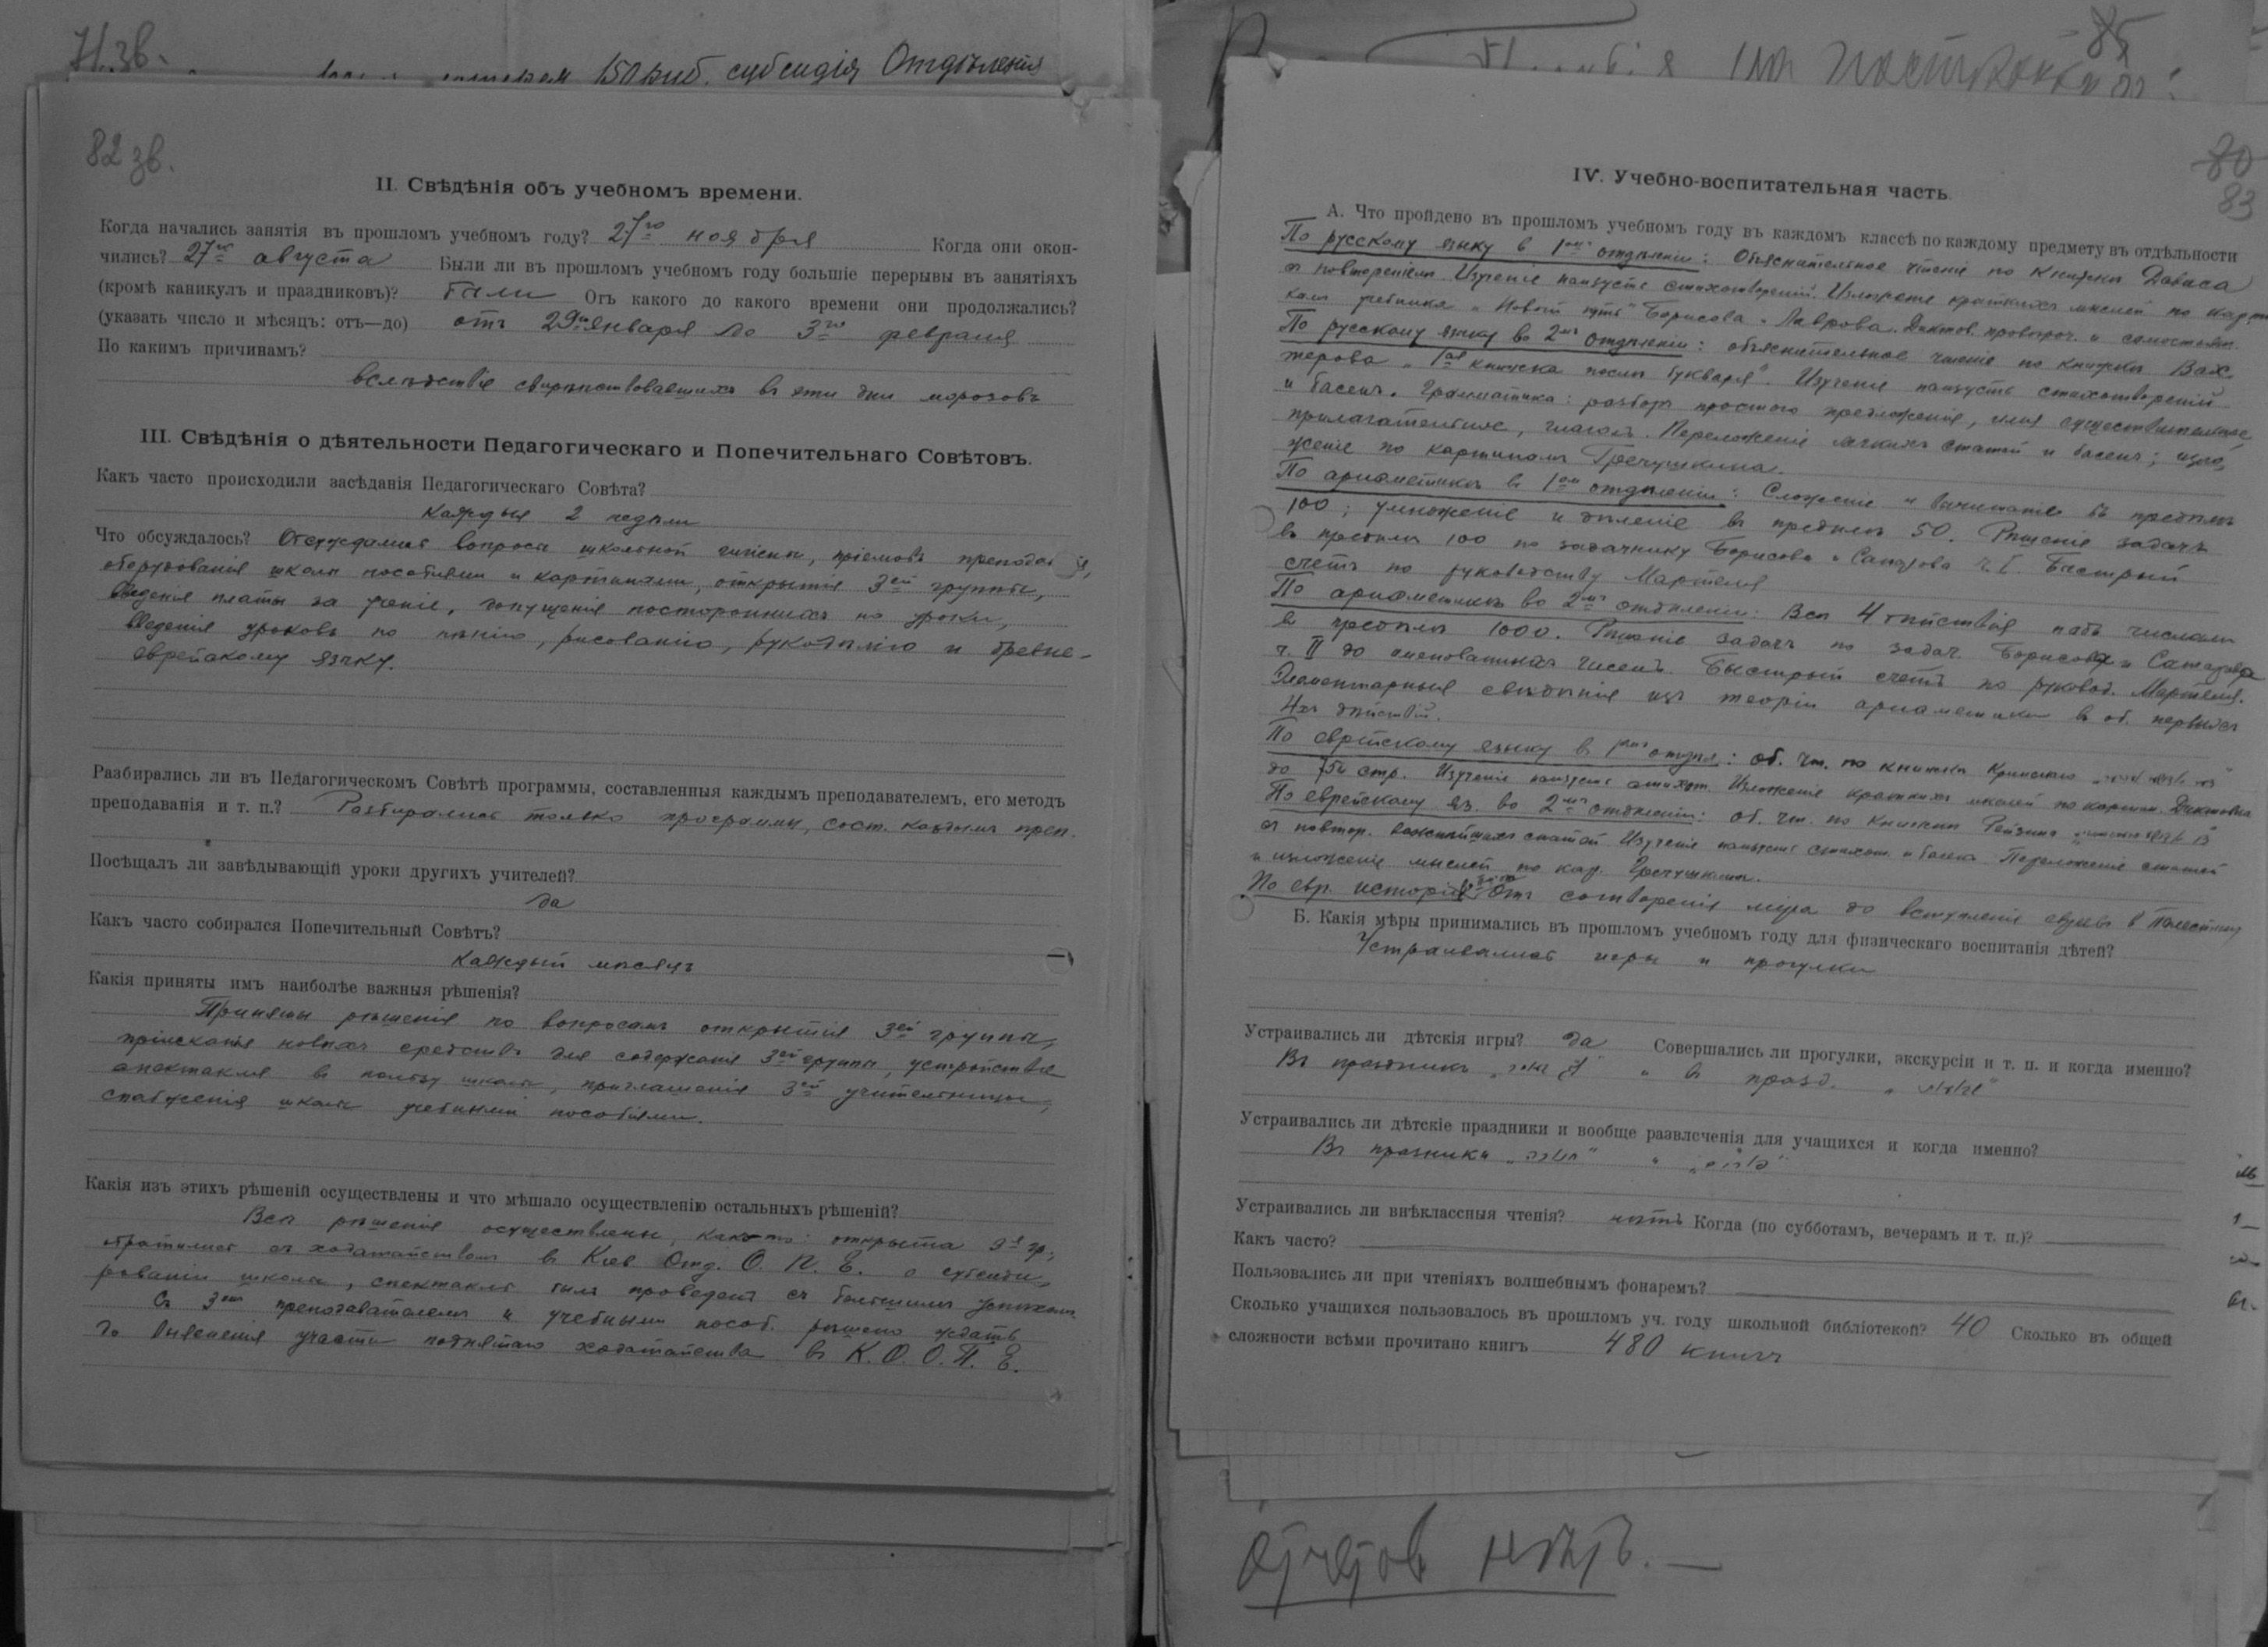 71 зв.
150 руб. субсидія Отдѣленія
82 зв.
II. Свѣдѣнія объ учебномъ времени.
Когда начались занятія въ прошломъ учебномъ году? 27го ноября Когда они окон-
чились? 27го августа Были ли въ прошломъ учебномъ году большіе перерывы въ занятіяхъ
(кромѣ каникулъ и праздниковъ)? были Отъ какого до какого времени они продолжались?
(указать число и мѣсяцъ: отъ—до) отъ 29го января до 3го февраля
По какимъ причинамъ?
вслѣдствіе свирѣпствовавшихъ въ эти дни морозовъ
III. Свѣдѣнія о дѣятельности Педагогическаго и Попечительнаго Совѣтовъ.
Какъ часто происходили засѣданія Педагогическаго Совѣта?
каждыя 2 недѣли
Что обсуждалось? Обсуждались вопросы школьной гигіены, пріемовъ
оборудованія школы пособіями и картинами, открытія 3ей группы,
введенія платы за ученіе, допущенія постороннихъ на уроки,
введенія уроковъ по пѣнію, рисованію, рукодѣлію и древне-
еврейскому языку.
Разбирались ли въ Педагогическомъ Совѣтѣ программы, составленныя каждымъ преподавателемъ, его методъ
преподаванія и т. п.? Разбирались только программы, сост. каждымъ преп.
Посѣщалъ ли завѣдывающій уроки другихъ учителей?
да
Какъ часто собирался Попечительный Совѣтъ?
каждый мѣсяцъ
Какія приняты имъ наиболѣе важныя рѣшенія?
Приняты рѣшенія по вопросамъ открытія 3ей группы,
пріисканія новыхъ средствъ для содержанія 3ей группы, устройства
спектакля въ пользу школы, приглашенія 3ей учительницы,
снабженія школы учебными пособіями.
Какія изъ этихъ рѣшеній осуществлены и что мѣшало осуществленію остальныхъ рѣшеній?
Всѣ рѣшенія осуществлены, какъ-то: открыта 3я гр.,
обратились съ ходатайствомъ в Кіев. Отд. О. П. Е. о субсиди-
рованіи школы, спектакль былъ проведенъ съ большимъ успѣхомъ.
Съ 3им преподавателемъ и учебными пособ. рѣшено ждать
до выясненія участи поднятаго ходатайства въ К. О. О. П. Е.
85
80
83
IV. Учебно-воспитательная часть.
А. Что пройдено въ прошломъ учебномъ году въ каждомъ классѣ по каждому предмету въ отдѣльности
По русскому языку в 1омъ отдѣленіи: Объяснительное чтеніе по книжкѣ Дависа
съ повтореніемъ. Изученіе наизусть стихотвореній. Изложеніе краткихъ мыслей по карти-
намъ учебника „Новый путь" Борисова и Лаврова. Диктов. провѣроч. и самостоят.
По русскому языку во 2мъ отдѣленіи: объяснительное чтеніе по книжкѣ Вах-
терова „1ая книжка послѣ букваря". Изученіе наизусть стихотвореній
и басенъ. Грамматика: разборъ простого предложенія, имя существительное,
прилагательное, глаголъ. Переложеніе легкихъ статей и басенъ; изло-
женіе по картинамъ Гречушкина.
По ариѳметикѣ в 1омъ отдѣленіи: Сложеніе и вычитаніе въ предѣлѣ
100; умноженіе и дѣленіе въ предѣлѣ 50. Рѣшеніе задачъ
въ предѣлѣ 100 по задачнику Борисова и Сатарова ч. I. Быстрый
счетъ по руководству Мартеля
По ариѳметикѣ во 2мъ отдѣленіи: Всѣ 4 дѣйствія надъ числами
въ предѣлѣ 1000. Рѣшеніе задачъ по задач. Борисова и Сатарова
ч. II до именованныхъ чиселъ. Быстрый счетъ по руковод. Мартеля.
Элементарныя свѣдѣнія изъ теоріи ариѳметики въ об. первыхъ
4хъ дѣйствій.
По еврейскому языку в 1мъ отдѣл.: об. чт. по книжкѣ Кринскаго
до 75й стр. Изученіе наизусть стихот. Изложеніе краткихъ мыслей по картин. Диктовка
По еврейскому яз. во 2мъ отдѣленіи: об. чт. по книжкѣ
съ повтор. важнѣйшихъ статей. Изученіе наизусть стихот. и басенъ. Переложеніе статей
и изложеніе мыслей по кар. Гречушкина.
По евр. исторіи Отъ сотворенія міра до вступленія евреевъ в Палестину
Б. Какія мѣры принимались въ прошломъ учебномъ году для физическаго воспитанія дѣтей?
Устраивались игры и прогулки
Устраивались ли дѣтскія игры? да Совершались ли прогулки, экскурсіи и т. п. и когда именно?
Въ праздникъ и въ празд.
Устраивались ли дѣтскіе праздники и вообще развлеченія для учащихся и когда именно?
Въ празники
Устраивались ли внѣклассныя чтенія? нѣтъ Когда (по субботамъ, вечерамъ и т. п.)?
Какъ часто?
Пользовались ли при чтеніяхъ волшебнымъ фонаремъ?
Сколько учащихся пользовалось въ прошломъ уч. году школьной библіотекой? 40 Сколько въ общей
сложности всѣми прочитано книгъ 480 книгъ
отчетов нѣтъ.